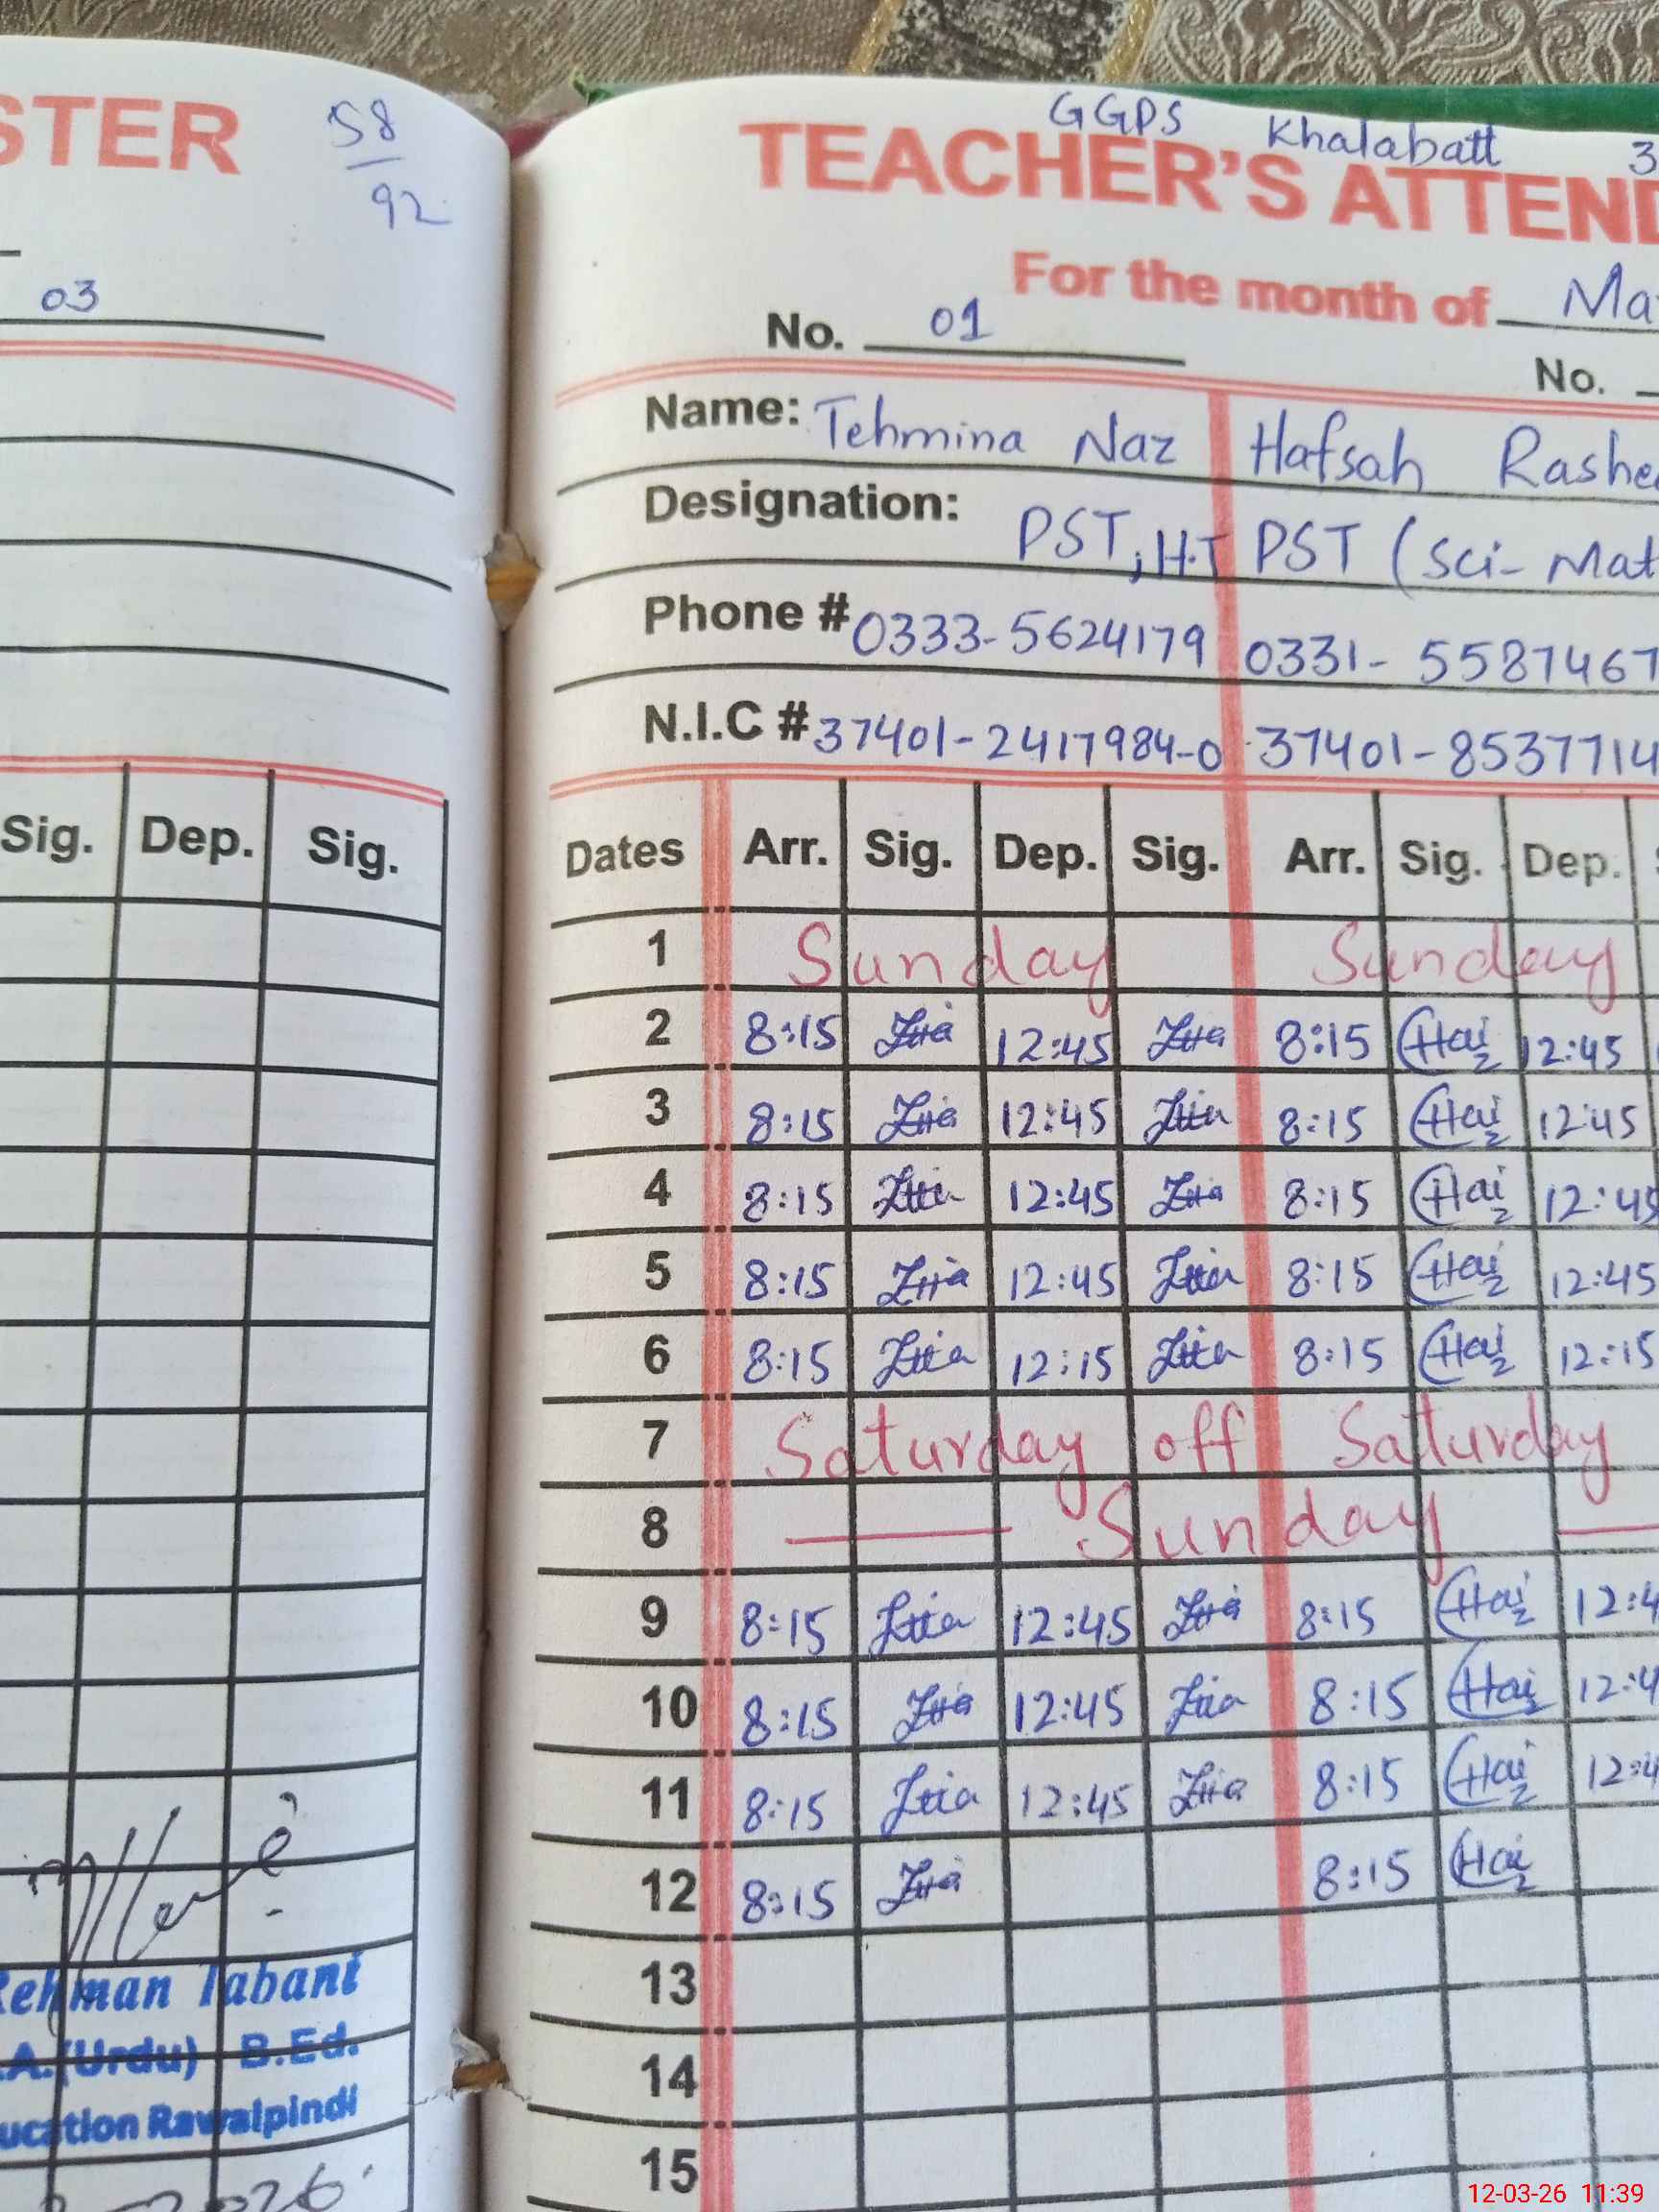 STER
58
92
03
Sig. Dep. Sig.
Rehman Tabani
.A.(Urdu) B.Ed.
ucation Rawalpindi
2026
GGPS Khalabatt 3
TEACHER'S ATTEND
For the month of Ma
No. 01
No.
Name: Tehmina Naz Hafsah Rashe
Designation: PST, H.T PST (Sci- Mat
Phone # 0333-5624179 0331- 5587467
N.I.C # 37401-2417984-0 37401-8537714
Dates Arr. Sig. Dep. Sig. Arr. Sig. Dep.
1 Sunday Sunday
2 8:15 12:45 8:15 12:45
3 8:15 12:45 8:15 12:45
4 8:15 12:45 8:15 12:45
5 8:15 12:45 8:15 12:45
6 8:15 12:15 8:15 12:15
7 Saturday off Saturday
8 Sunday
9 8:15 12:45 8:15 12:4
10 8:15 12:45 8:15 12:4
11 8:15 12:45 8:15 12:4
12 8:15 8:15
13
14
15
12-03-26 11:39